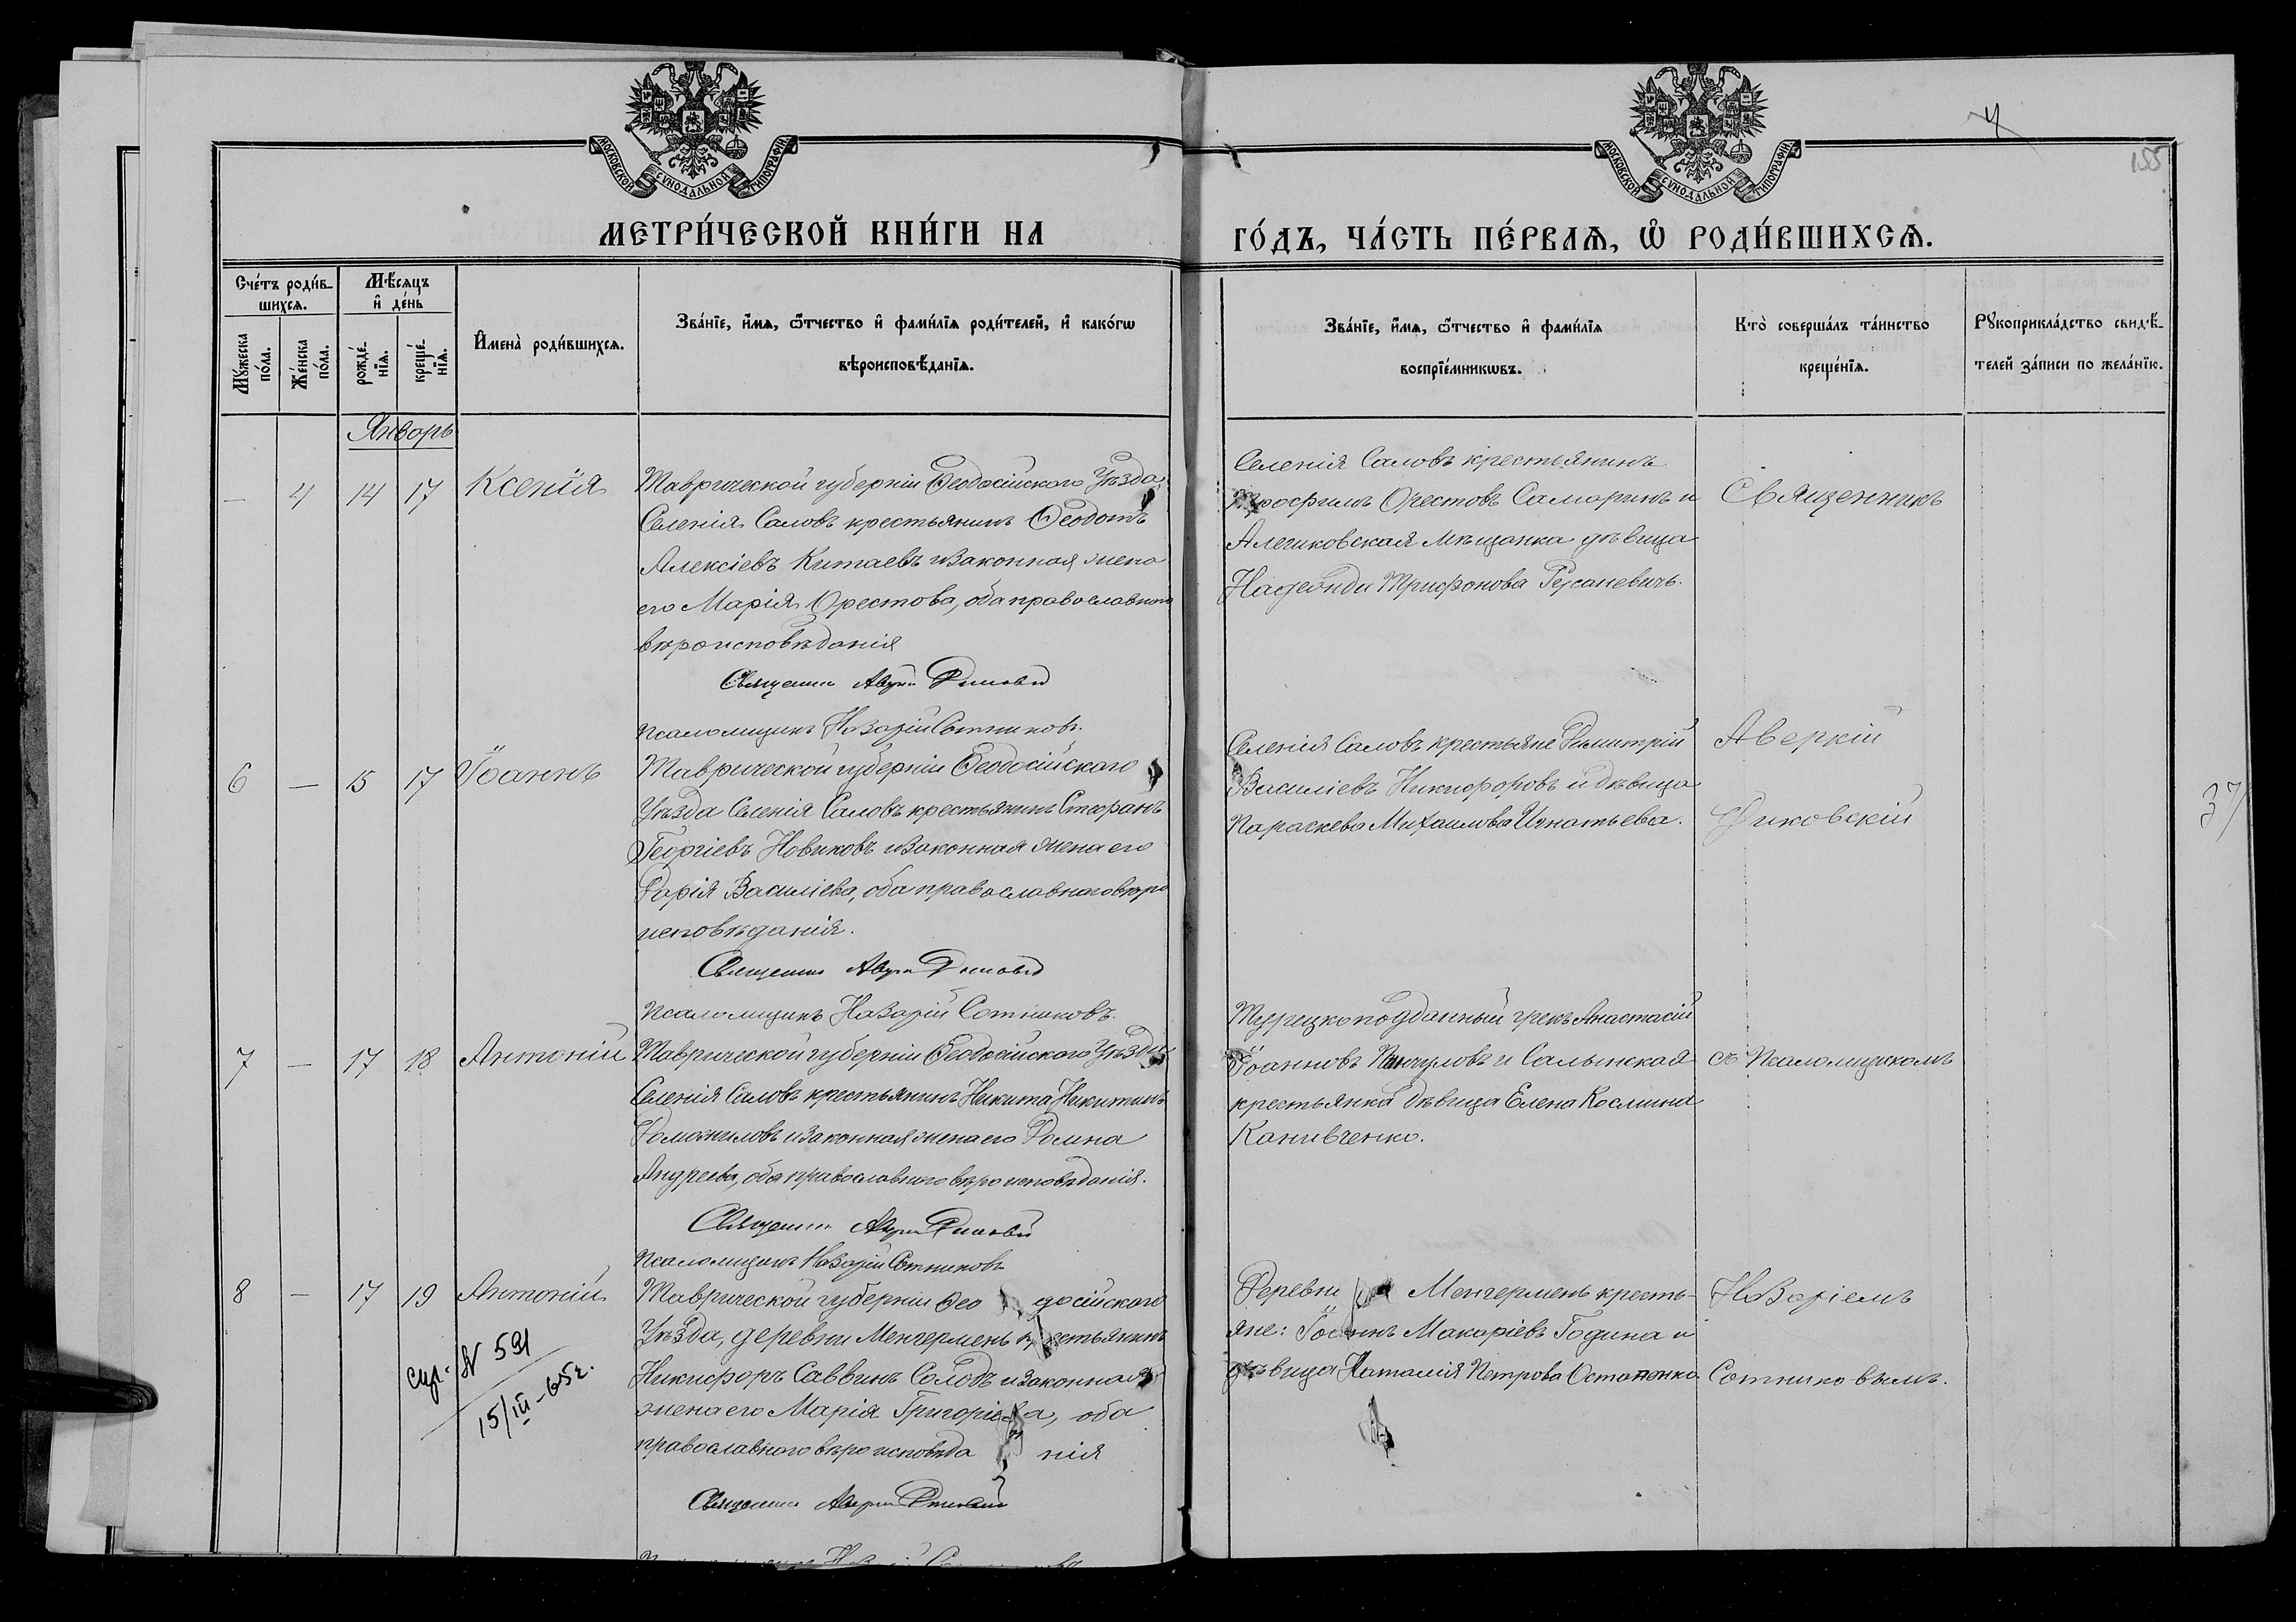 МОСКОВСКОЙ СѴНОДАЛЬНОЙ ТИПОГРАФІИ
МОСКОВСКОЙ СѴНОДАЛЬНОЙ ТИПОГРАФІИ
4
155
МЕТРИ́ЧЕСКОЙ КНИ́ГИ НА
ГО́ДЪ, ЧА́СТЬ ПЕ́РВАѦ, Ѡ҆ РОДИ́ВШИХСѦ.
Сче́тъ роди́в-
шихсѧ.
Мѣ́сѧцъ
и҆ де́нь
Мꙋ́жеска
по́ла.
Же́нска
по́ла.
рожде́-
нїѧ.
креще́-
нїѧ.
И҆мена̀ роди́вшихсѧ.
Зва́нїе, и҆́мѧ, ѻ҆́тчество и҆ фами́лїѧ роди́телей, и҆ како́гѡ
вѣроисповѣ́данїѧ.
Зва́нїе, и҆́мѧ, ѻ҆́тчество и҆ фами́лїѧ
воспрїе́мникѡвъ.
Кто̀ соверша́лъ та́инство
креще́нїѧ.
Рꙋкоприкла́дство свидѣ́-
телей за́писи по жела́нїю.
Январь
— 4 14 17 Ксенія
Таврической губерніи Ѳеодосійскаго Уѣзда
Селенія Саловъ крестьянинъ Ѳеодотъ
Алексіевъ Китаевъ и законная жена
его Марія Орестова, оба православнаго
вѣроисповѣданія
Священникъ Аверкій
Псаломщикъ Назарій Сотниковъ.
Селенія Саловъ крестьянинъ
Орестовъ Самаринъ и
Алешковская мѣщанка дѣвица
Трифонова
Священникъ
6 — 15 17 Іоаннъ
Таврической губерніи Ѳеодосійскаго
Уѣзда Селенія Саловъ крестьянинъ Стефанъ
Георгіевъ Новиковъ и законная жена его
Дарія Василіева, оба православнаго вѣро
исповѣданія.
Священникъ Аверкій
Псаломщикъ Назарій Сотниковъ.
Селенія Саловъ крестьяне Димитрій
Василіевъ Никифоровъ и дѣвица
Параскева Михаилова Игнатьева.
Аверкій
37
7 — 17 18 Антоній
Таврической губерніи Ѳеодосійскаго Уѣзда
Селенія Саловъ крестьянинъ Никита Никитинъ
Доможиловъ и законная жена его Домна
Андреева, оба православнаго вѣроисповѣданія.
Священникъ Аверкій
Псаломщикъ Назарій Сотниковъ
Турецкоподданный грекъ Анастасій
Іоанновъ и Салынская
крестьянка дѣвица Елена Космина
Канивченко.
съ Псаломщикомъ
8 — 17 19 Антоній
Таврической губерніи Ѳео досійскаго
Уѣзда, деревни Менгермень крестьянинъ
Никифоръ Саввинъ Солодъ и законная
жена его Марія Григоріева, оба
православнаго вѣроисповѣда нія
Священникъ Аверкій
Деревни Менгермень кресть-
яне: Іоаннъ Макаріевъ Година и
дѣвица Наталія Петрова Остапенко
Назаріемъ
Сотниковымъ.
N 591
15/III-65г.